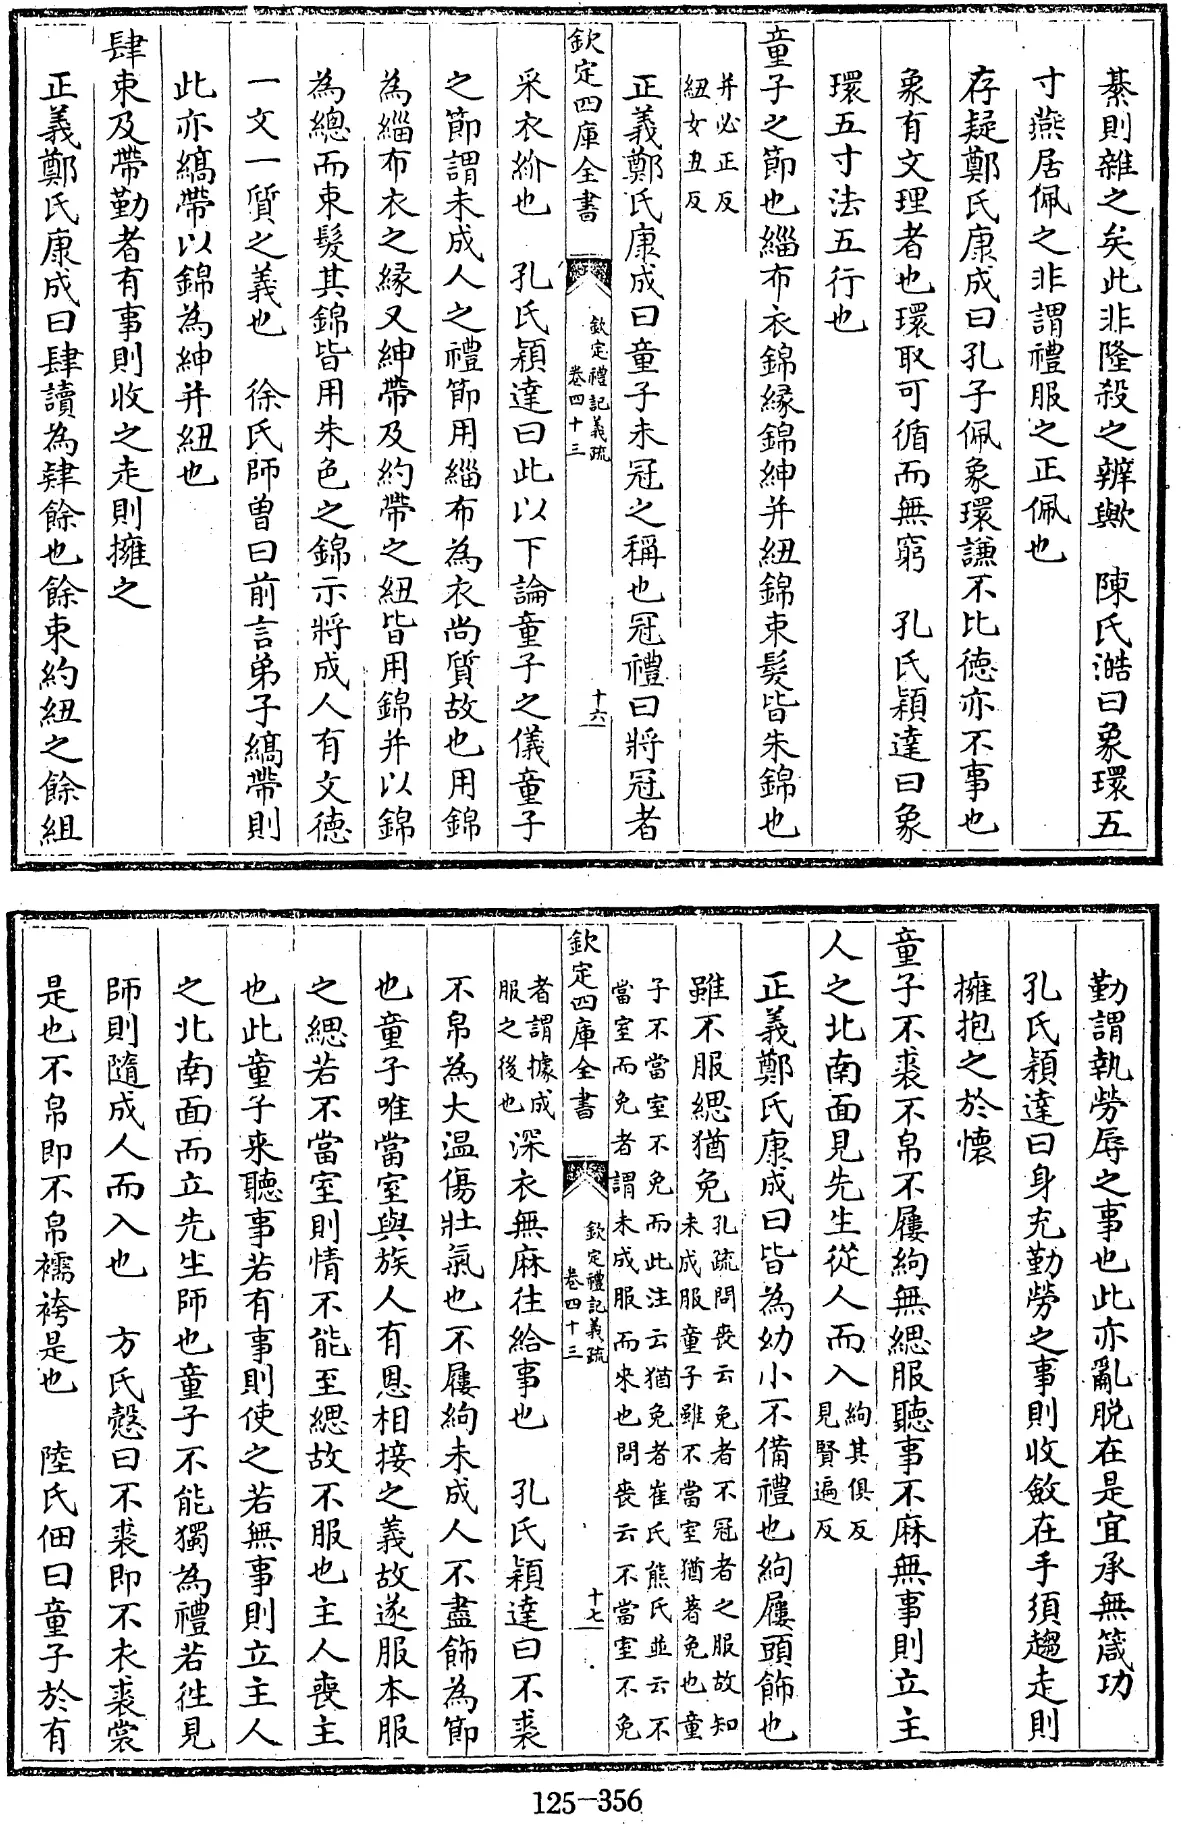 綦則雜之矣此非隆殺之辨歟　陳氏澔曰象環五
寸燕居佩之非謂禮服之正佩也
存疑鄭氏康成曰孔子佩象環謙不比徳亦不事也
象有文理者也環取可循而無窮　孔氏穎達曰象
環五寸法五行也
童子之節也緇布衣錦緣錦紳并紐錦束髮皆朱錦也
并必正反
紐女丑反
正義鄭氏康成曰童子未冠之稱也冠禮曰將冠者
欽定四庫全書
欽定禮記義疏
卷四十三
十六
采衣紒也　孔氏穎達曰此以下論童子之儀童子
之節謂未成人之禮節用緇布為衣尚質故也用錦
為緇布衣之緣又紳帶及約帶之紐皆用錦并以錦
為總而束髮其錦皆用朱色之錦示將成人有文徳
一文一質之義也　徐氏師曾曰前言弟子縞帶則
此亦縞帶以錦為紳并紐也
肆束及帶勤者有事則收之走則擁之
正義鄭氏康成曰肆讀為肄餘也餘束約紐之餘組
勤謂執勞辱之事也此亦亂脱在是宜承無箴功
孔氏穎達曰身充勤勞之事則收斂在手須趨走則
擁抱之於懐
童子不裘不帛不屨絇無緦服聽事不麻無事則立主
人之北南面見先生從人而入
絇其俱反
見賢遍反
正義鄭氏康成曰皆為幼小不備禮也絇屨頭飾也
雖不服緦猶免
孔疏問喪云免者不冠者之服故知
未成服童子雖不當室猶著免也童
子不當室不免而此注云猶免者崔氏熊氏並云不
當室而免者謂未成服而來也問喪云不當室不免
欽定四庫全書
欽定禮記義疏
卷四十三
十七
者謂據成
服之後也
深衣無麻往給事也　孔氏穎達曰不裘
不帛為大温傷壮氣也不屨絇未成人不盡飾為節
也童子唯當室與族人有恩相接之義故遂服本服
之緦若不當室則情不能至緦故不服也主人喪主
也此童子來聽事若有事則使之若無事則立主人
之北南面而立先生師也童子不能獨為禮若徃見
師則隨成人而入也　方氏慤曰不裘即不衣裘裳
是也不帛即不帛襦袴是也　陸氏佃曰童子於有
125-356